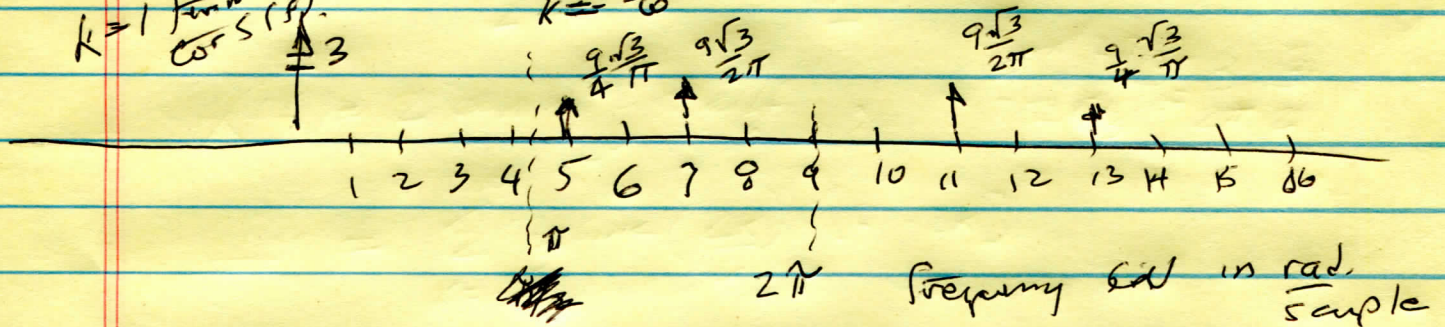 k=1
cos(
3
9/4 √3/π 9√3/2π 9√3/2π 9/4 √3/π
1 2 3 4 5 6 7 8 9 10 11 12 13 14 15 16
π
2π frequency in rad.
sample